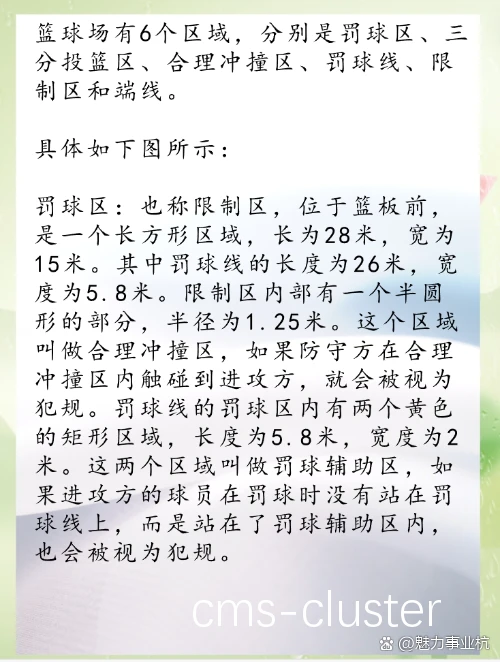 篮球场有6个区域，分别是罚球区、三
分投篮区、合理冲撞区、罚球线、限
制区和端线。
具体如下图所示：
罚球区：也称限制区，位于篮板前，
是一个长方形区域，长为28米，宽为
15米。其中罚球线的长度为26米，宽
度为5.8米。限制区内部有一个半圆
形的部分，半径为1.25米。这个区域
叫做合理冲撞区，如果防守方在合理
冲撞区内触碰到进攻方，就会被视为
犯规。罚球线的罚球区内有两个黄色
的矩形区域，长度为5.8米，宽度为2
米。这两个区域叫做罚球辅助区，如
果进攻方的球员在罚球时没有站在罚
球线上，而是站在了罚球辅助区内，
也会被视为犯规。
cms-cluster
@魅力事业杭